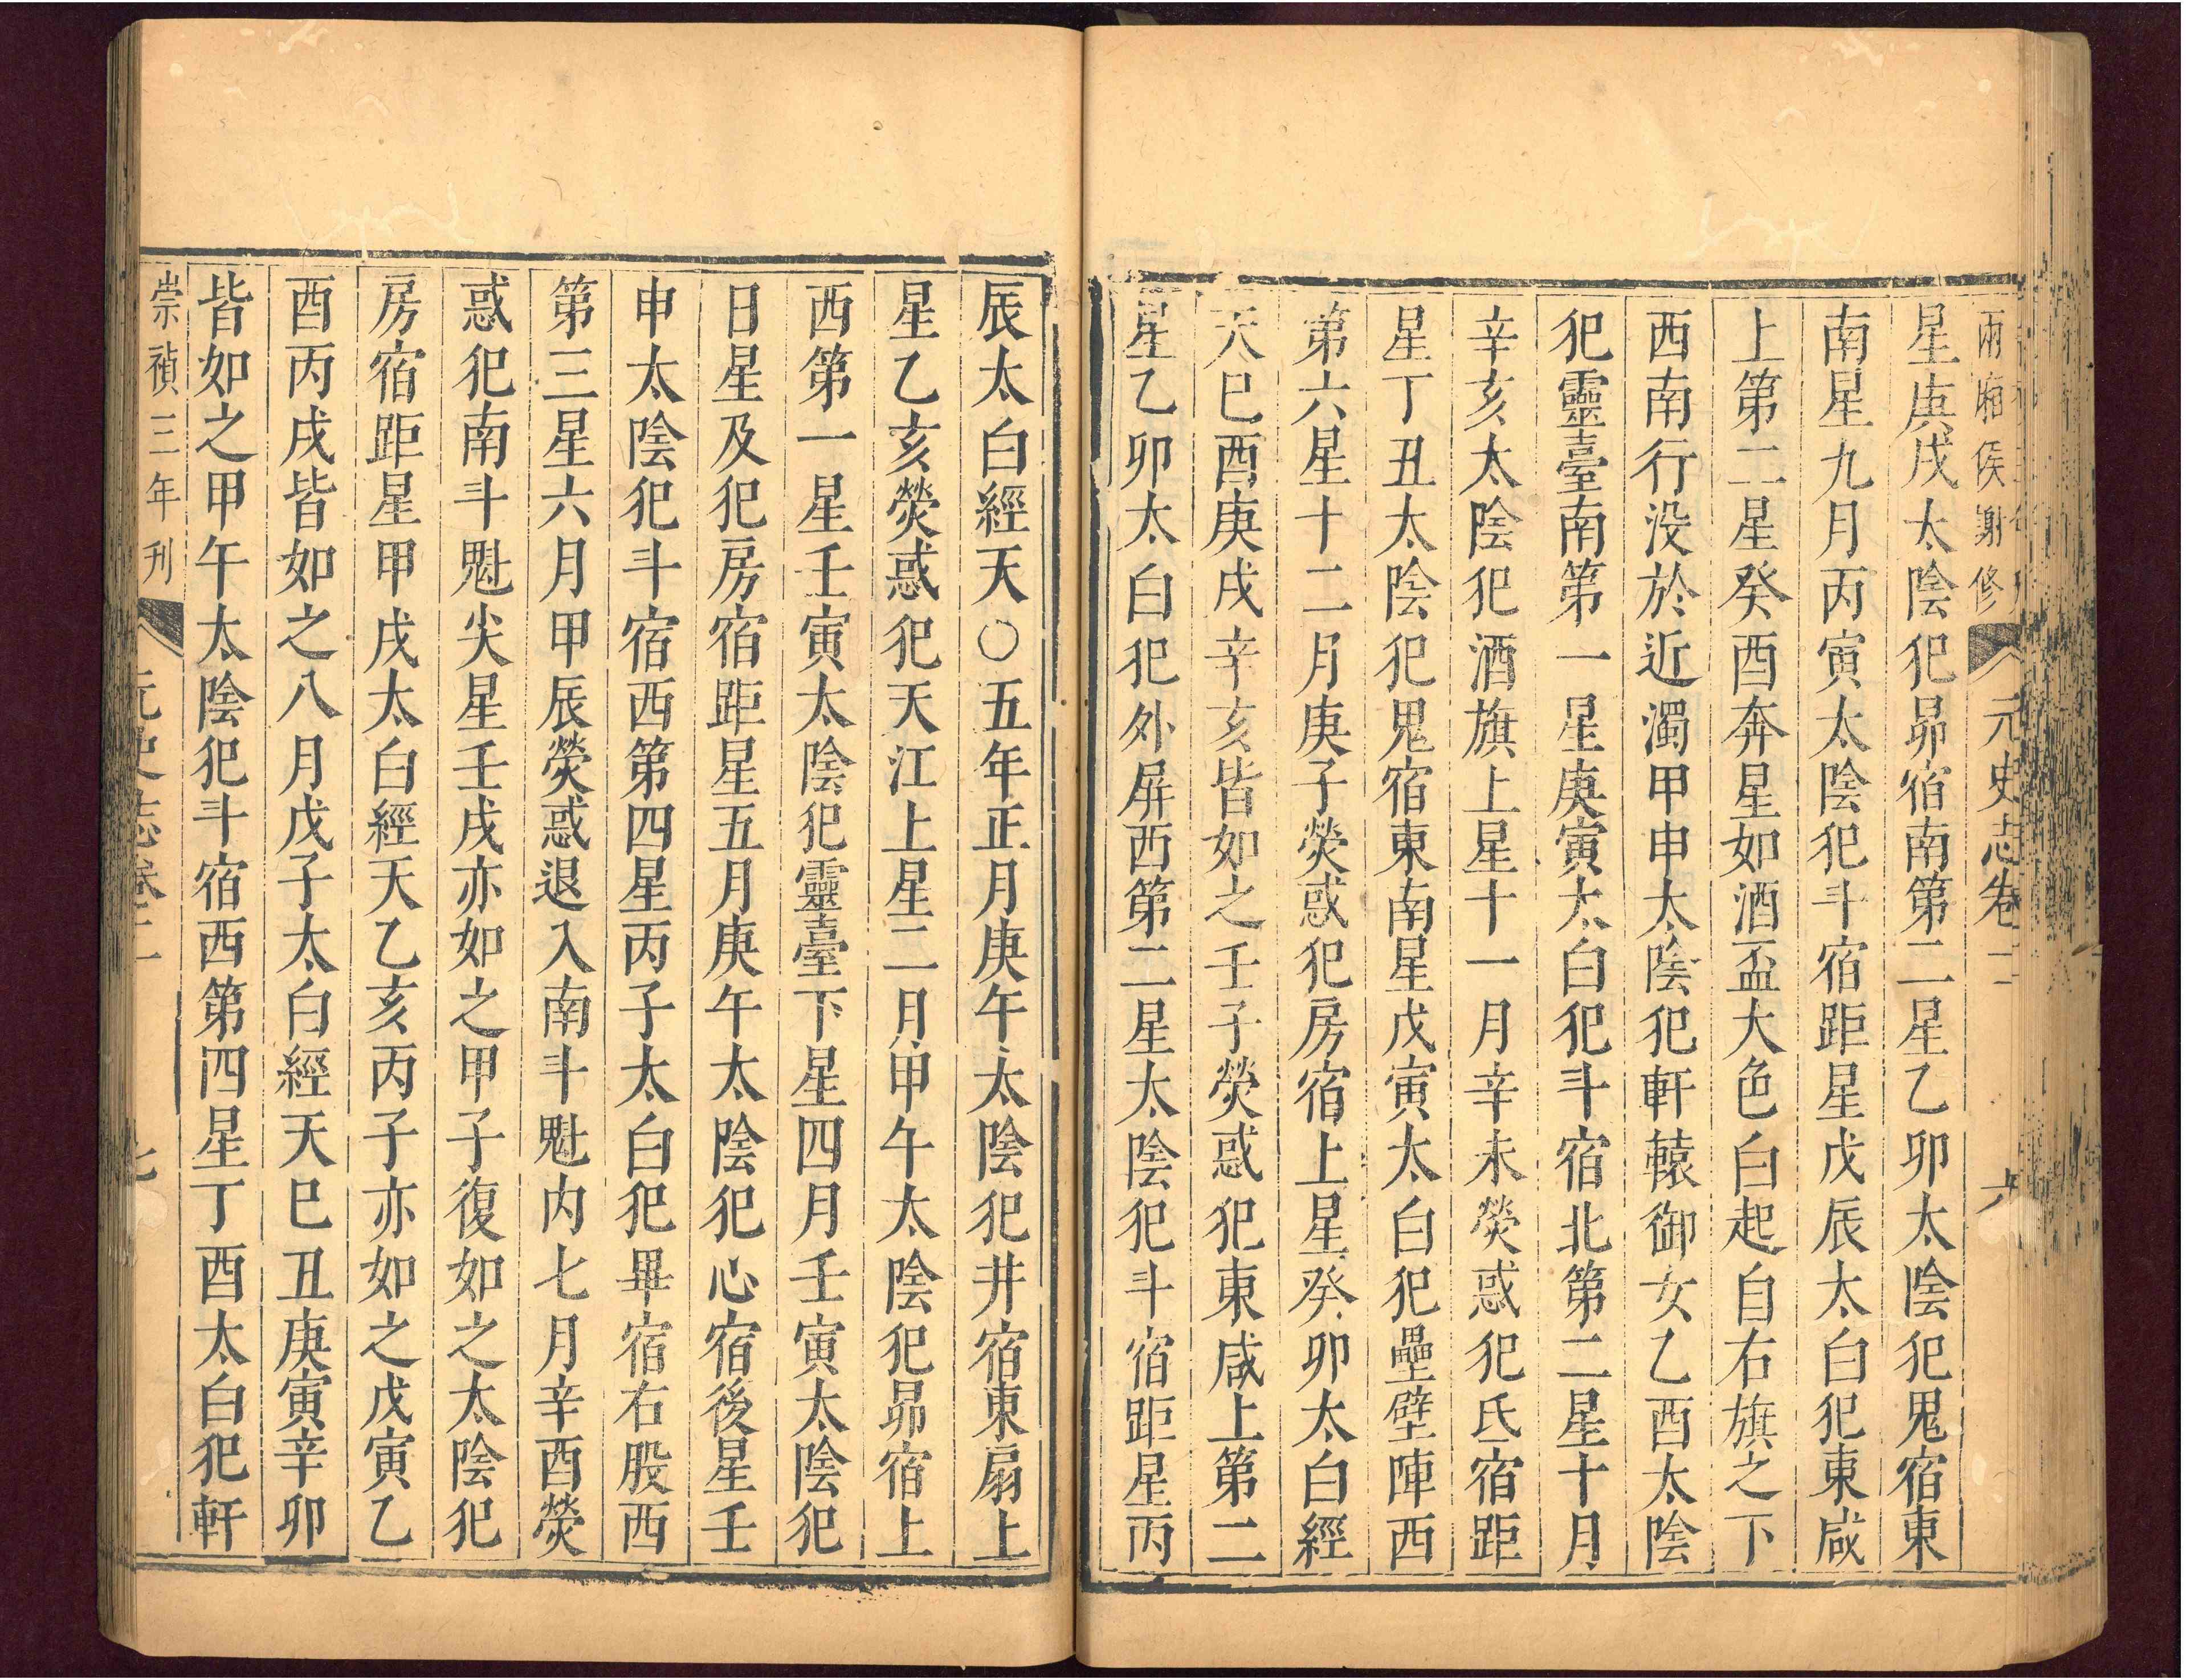 兩廂侯謝修 元史志卷二 六
星庚戌太陰犯昴宿南第二星乙卯太陰犯鬼宿東
南星九月丙寅太陰犯斗宿距星戊辰太白犯東咸
上第二星癸酉奔星如酒盃大色白起自右旗之下
西南行没於近濁甲申太陰犯軒轅御女乙酉太陰
犯靈臺南第一星庚寅太白犯斗宿北第二星十月
辛亥太陰犯酒旗上星十一月辛未熒惑犯氐宿距
星丁丑太陰犯鬼宿東南星戊寅太白犯壘壁陣西
第六星十二月庚子熒惑犯房宿上星癸卯太白經
天巳酉庚戌辛亥皆如之壬子熒惑犯東咸上第二
星乙卯太白犯外屏西第二星太陰犯斗宿距星丙
辰太白經天○五年正月庚午太陰犯井宿東扇上
星乙亥熒惑犯天江上星二月甲午太陰犯昴宿上
西第一星壬寅太陰犯靈臺下星四月壬寅太陰犯
日星及犯房宿距星五月庚午太陰犯心宿後星壬
申太陰犯斗宿西第四星丙子太白犯畢宿右股西
第三星六月甲辰熒惑退入南斗魁内七月辛酉熒
惑犯南斗魁尖星壬戌亦如之甲子復如之太陰犯
房宿距星甲戌太白經天乙亥丙子亦如之戊寅乙
酉丙戌皆如之八月戊子太白經天巳丑庚寅辛卯
皆如之甲午太陰犯斗宿西第四星丁酉太白犯軒
崇禎三年刊 元史志卷二 七